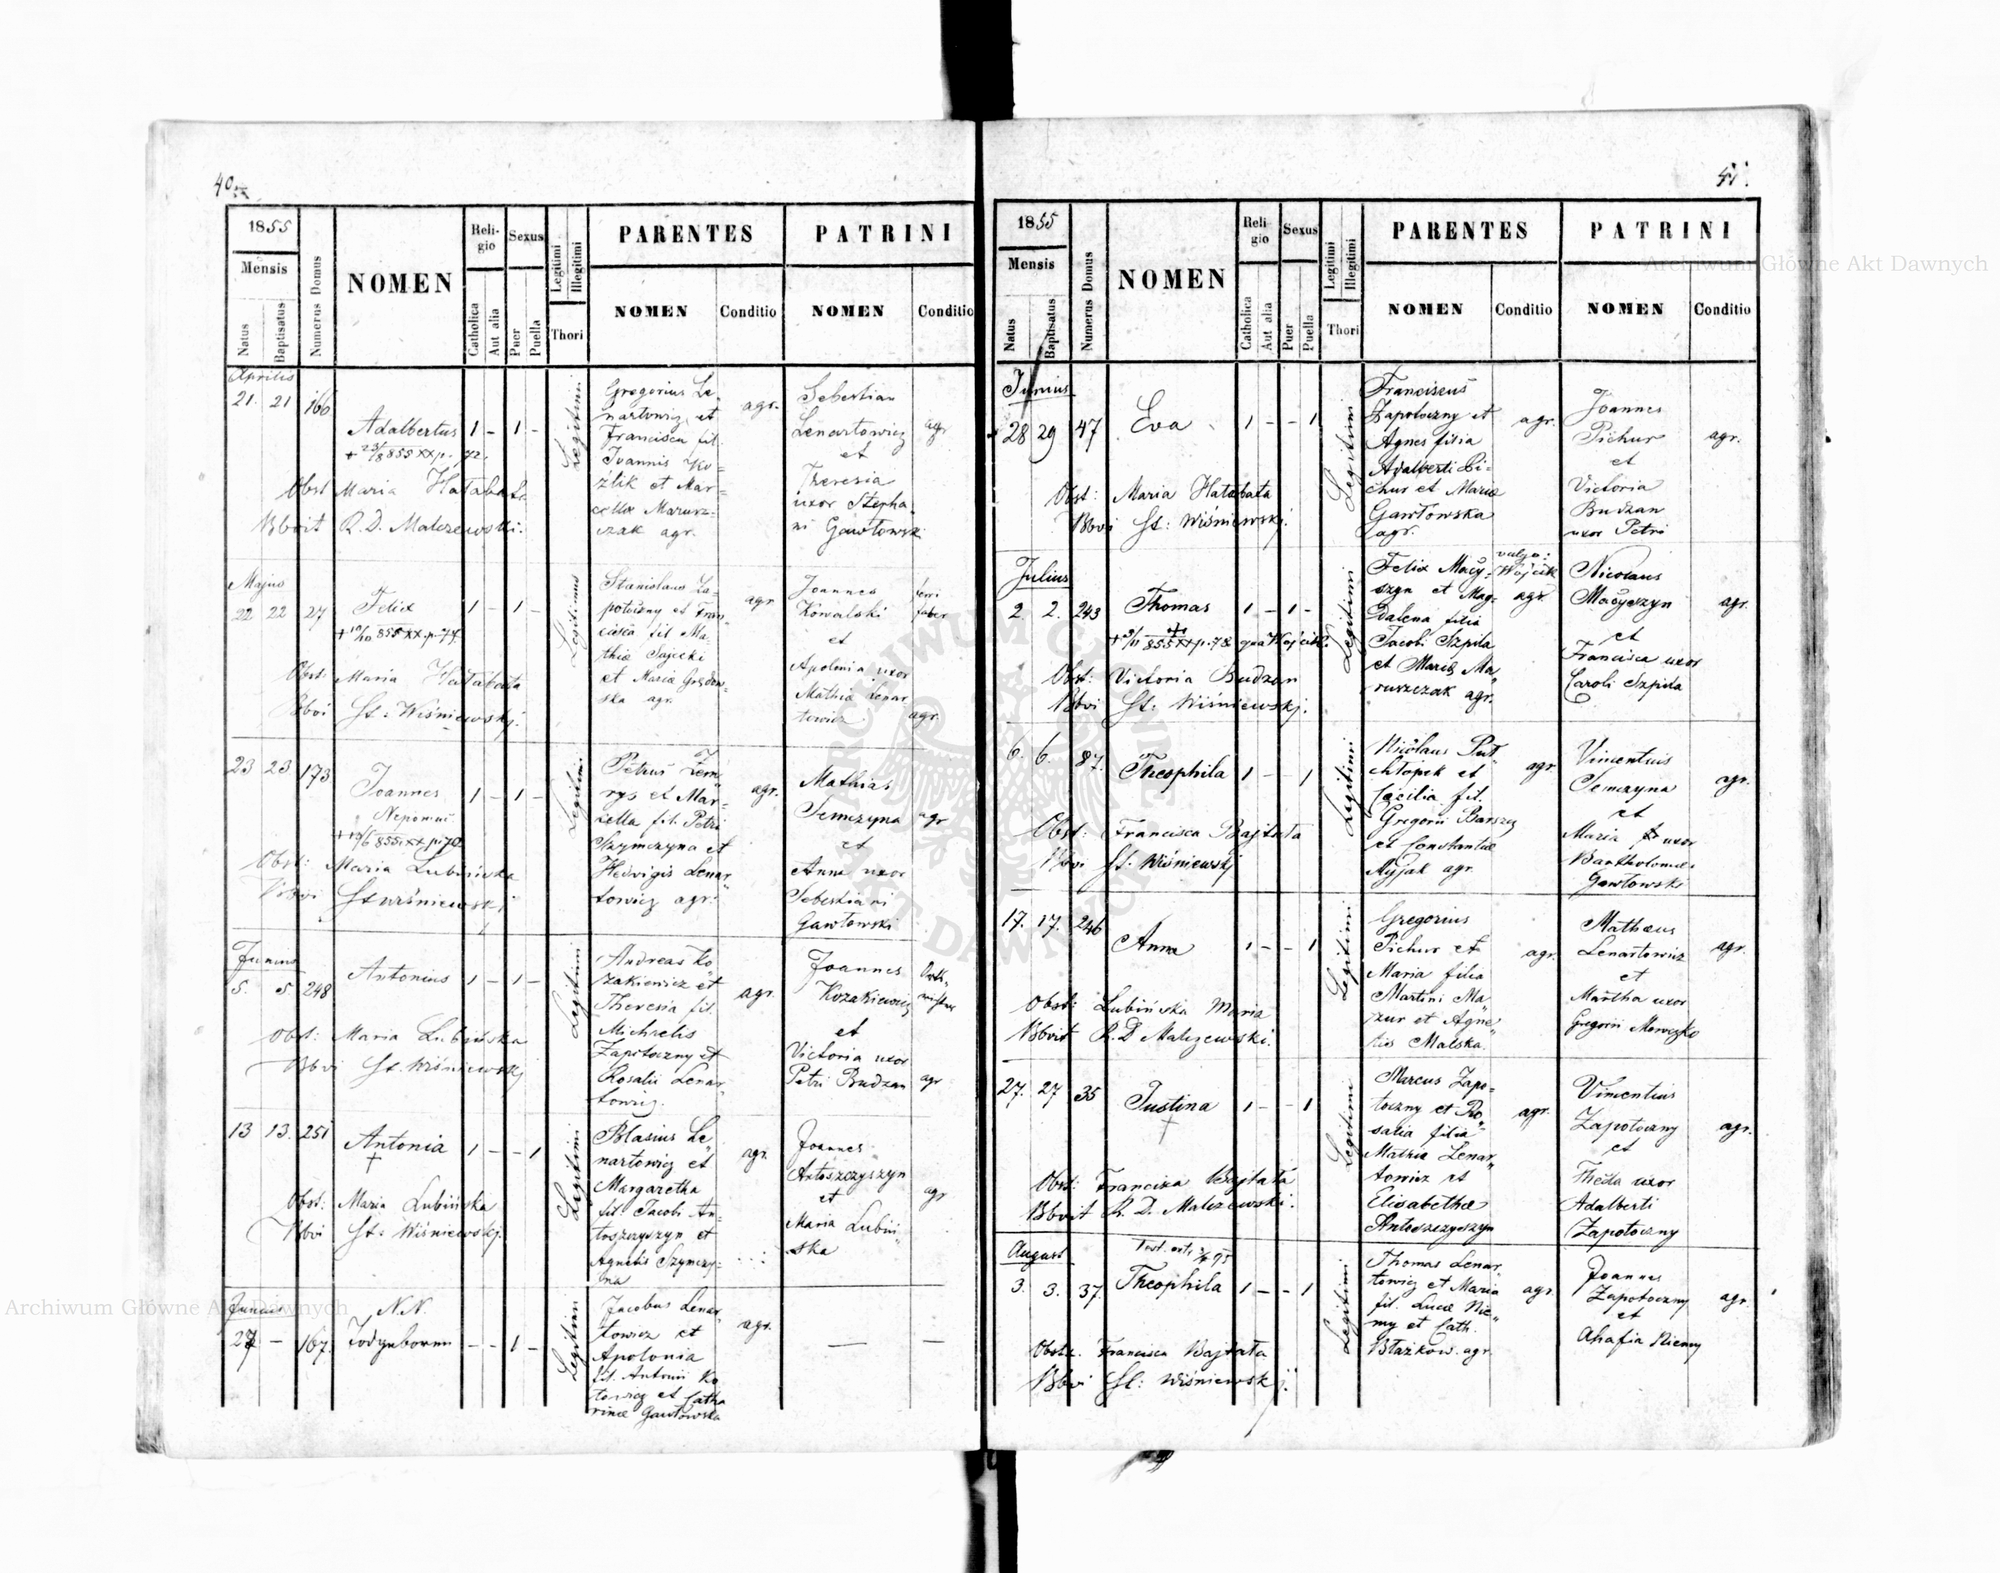 40
1855
Mensis
Natus
Baptisatus
Numerus Domus
NOMEN
Reli-
gio
Catholica
Aut alia
Sexus
Puer
Puella
Legitimi
Illegitimi
Thori
PARENTES
NOMEN
Conditio
PATRINI
NOMEN
Conditio
Aprilis
21. 21 160
Adalbertus 1 - 1 -
Obst Maria Hałabała
Bbvit R. D. Malczewski.
Legitimi
Gregorius Le-
nartowicz et
Francisca fil.
Joannis Ko-
źlik et Mar-
cellae Marusz-
czak agr.
agr.
Sebestian
Lenartowicz
et
Theresia
uxor Stepha-
ni Gawłowski
agr
Majus
22 22 27
Felix 1 - 1 -
Obst: Maria Hałabała
Bbvi St: Wiśniewskj.
Legitimus
Stanislaus Za-
potoczny et Fran-
cisca fil Ma-
thiae Sajecki
et Mariae
ska agr.
agr
Joannes
Kowalski
et
Apolonia uxor
Mathiae Lenar
towicz
ferri
faber
agr.
23 23 173
Joannes 1 - 1 -
Nepomuc
Obst: Maria Lubińska
Bbvi St Wiśniewskj
Legitimi
Petrus
rys et Mar-
cella fil. Petri
Szymczyna et
Hedvigis Lenar
towicz agr.
agr.
Mathias
Semczyna
et
Anna uxor
Sebestiani
Gawłowski
agr
Junius
5. 5. 248
Antonius 1 - 1 -
Obst: Maria Lubińska
Bbvi St. Wiśniewskj
Legitimi
Andreas Ko
zakiewicz et
Theresia fil.
Michaelis
Zapotoczny et
Rosalii Lenar
towicz.
agr.
Joannes
Kozakiewicz
et
Victoria uxor
Petri Budzan
agr
13 13. 251
Antonia 1 - - 1
†
Obst: Maria Lubińska
Bbvi St: Wiśniewskj.
Legitimi
Blasius Le
nartowicz et
Margaretha
fil Jacobi An-
toszczyszyn et
Agnetis Szymczy-
na
agr.
Joannes
Antoszczyszyn
et
Maria Lubiń
ska
agr
Junius
27 - 167.
N.N.
- - 1 -
Legitimi
Jacobus Lenar
towicz et
Apolonia
fil. Antonii Ko
towicz et Catha
rinae Gawłowska
agr.
41.
1855
Mensis
Natus
Baptisatus
Numerus Domus
NOMEN
Reli-
gio
Catholica
Aut alia
Sexus
Puer
Puella
Legitimi
Illegitimi
Thori
PARENTES
NOMEN
Conditio
PATRINI
NOMEN
Conditio
Junius
28 29 47
Eva 1 - - 1
Obst: Maria Hałabała
Bbvi St: Wiśniewskj.
Legitimi
Franciscus
Zapotoczny et
Agnes filia
Adalberti Pi-
chur et Mariae
Gawłowska
agr.
agr.
Joannes
Pichur
et
Victoria
Budzan
uxor Petri
agr.
Julius
2. 2. 243
Thomas 1 - 1 -
Obst: Victoria Budzan
Bbvi St. Wiśniewskj.
Legitimi
Felix Macy-
szyn et Mag-
dalena filia
Jacobi Szpila
et Mariae Ma
ruszczak agr.
vulgo:
Wójcik
agr.
Nicolaus
Macyszyn
et
Francisca uxor
Caroli Szpila
agr.
6. 6. 87.
Theophila 1 - - 1
Obst: Francisca Bajtała
Bbvi St: Wiśniewskj
Legitimi
Nicolaus Puł
chłopek et
Caecilia fil.
Gregorii Barszcz
et Constantiae
agr.
agr.
Vincentius
Semczyna
et
Maria uxor
Bartholomaei
Gawłowski
agr.
17. 17. 246
Anna 1 - - 1
Obst: Lubińska Maria
Bbvit R. D Malczewski.
Legitimi
Gregorius
Pichur et
Maria filia
Martini Ma
zur et Agne
tis Malska.
agr.
Mathaeus
Lenartowicz
et
Martha uxor
Gregorii Moroczko
agr.
27. 27 35
Justina 1 - - 1
†
Obst: Francisca Bajtała
Bbvit R. D. Malczewski.
Legitimi
Marcus Zapo-
toczny et Ro
salia filia
Mathiae Lenar
towicz et
Elisabethae
Antoszczyszyn
agr.
Vincentius
Zapotoczny
et
Thecla uxor
Adalberti
Zapotoczny
agr.
August
3. 3. 37.
Theophila 1 - - 1
Obste. Francisca Bajtała
Bbvi St: Wiśniewskj.
Legitimi
Thomas Lenar
towicz et Maria
fil. Lucae Nie-
my et Cath.
Błażków. agr.
agr.
Joannes
Zapotoczny
et
Ahafia Niemy
agr.
Archiwum Główne Akt Dawnych
Archiwum Główne Akt Dawnych
ARCHIWUM GŁÓWNE
AKT DAWNYCH